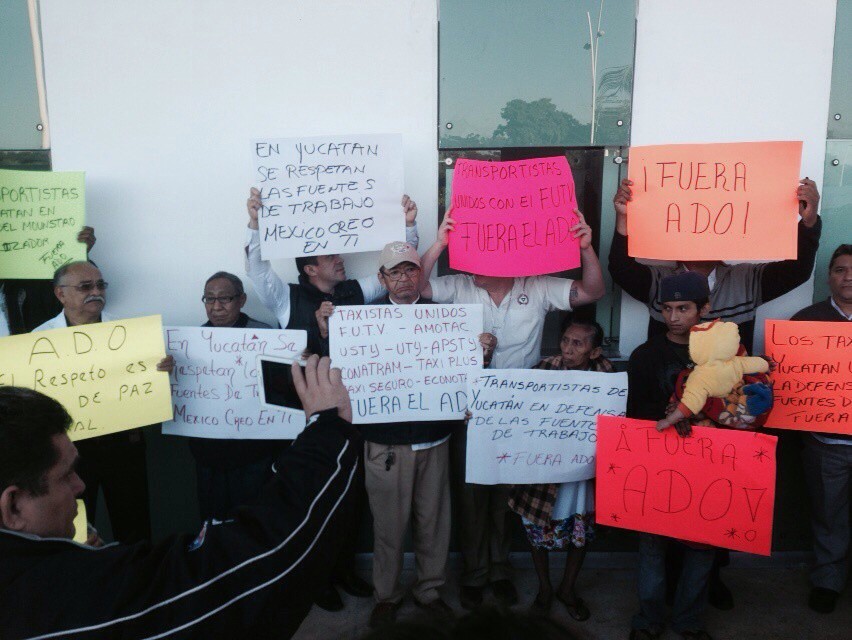 PORTISTAS
ATAN EN
EL MOUNSTRO
IZADOR FUERA
EN YUCATAN
SE RESPETAN
LAS FUENTES
DE TRABAJO
MEXICO CREO
EN TI
TRANSPORTISTAS
UNIDOS CON EL FUTV
FUERA EL ADO
¡FUERA
ADO!
A.D.O
El Respeto es
DE PAZ
En Yucatán Se
respetan las
Fuentes De T
Mexico Creo En Ti
TAXISTAS UNIDOS
FUTV - AMOTAC
USTY - UTY - APSTY
CONATRAM - TAXI PLUS
TAXI SEGURO - ECONOT
FUERA EL AD
* TRANSPORTISTAS DE
YUCATÁN EN DEFENSA
DE LAS FUENTE
DE TRABAJO
* FUERA ADO
¡FUERA
* ADO *
*
LOS TAX
YUCATAN U
LA DEFENS
FUENTES D
FUERA